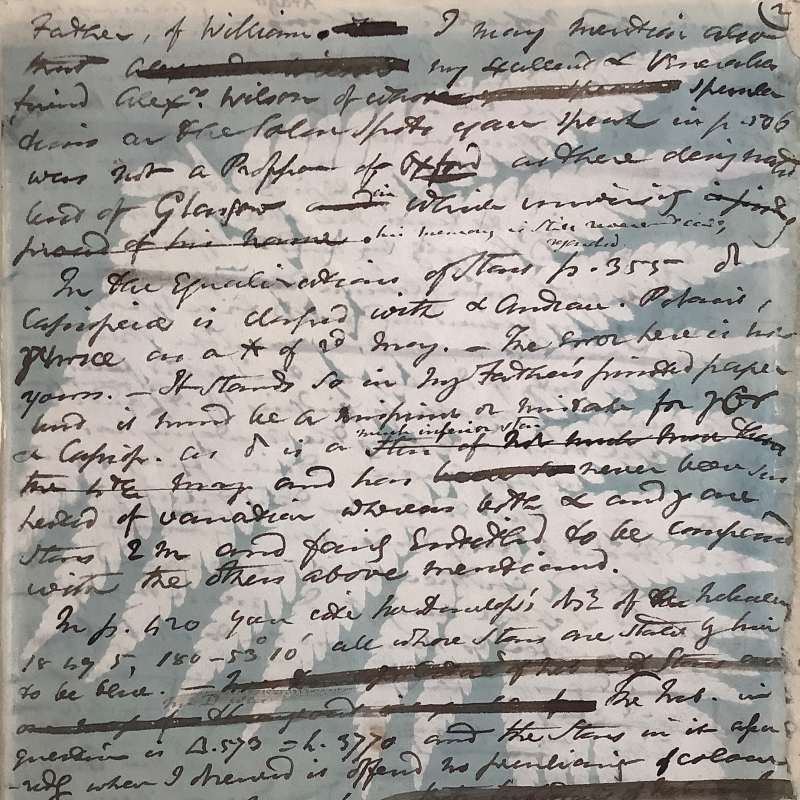 2
Father, of William. I may mention also
that my excellent & Venerable
friend Alexr. Wilson of whose specula
tions on the Solar Spots you speak in p. 506
was not a Professor of Oxford as there designated
but of Glasgow in which university
proud of his name. his memory is still revered and
respected
In the Equalizations of Stars p. 355 δ
Cassiopeiae is classed with α Androm. Polaris,
γ as a * of 2d Mag. — The Error here is not
yours. — It stands so in my Father's printed paper
and it must be a misprint or mistake for γ or
α Cassiop. as δ is a much inferior star
the 4th mag and has never been sus
pected of variation whereas both α and γ are
Stars 2 m and fairly entitled to be compared
with the others above mentioned.
In p. 420 you cite Mr Dunlop's obs of the nebula
18 49 5, 180-53° 10' all whose Stars are stated by him
to be blue. — The Neb. in
question is Δ.573 = h. 3770 and the Stars in it
when I observed it offered no peculiarity of colour